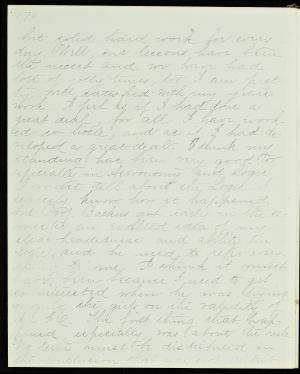 but solid hard work for every
day. Well, our lessons have been
the nicest and we have had
lots of jolly times, too. I am pret-
ty well satisfied with my years
work. I feel as if I had done a
great deal, for all I have work-
ed so little, and as if I had de-
veloped a great deal. I think my
standing has been very good too
especially in Astronomy and Logic.
I must tell about the Logic. I
scarcely know how it happened,
but Prof. Backus got early in the se-
mester an exalted idea of my
clear headedness and ability in
Logic, and he used to refer every-
thing to me. I think it must
have been because I used to get
so interested when he was trying
to the girls on the validity of
A. E. O. The first thing that hap-
pened especially was about the rule
must be distributed in
the conclusion that